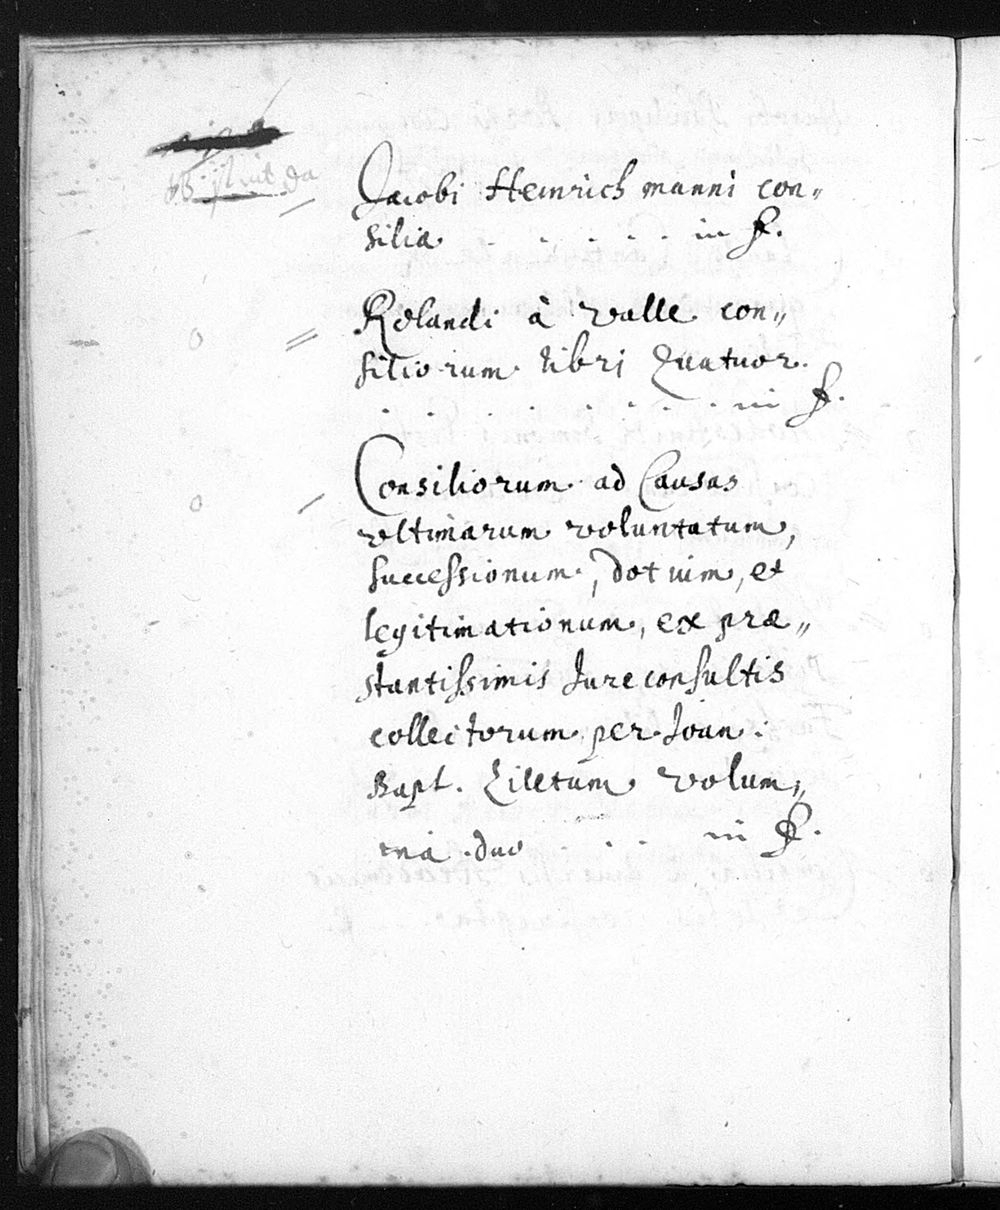 ist da
Jacobi Heinrichmanni con„
silia . . . . . in f.
Rolandi à valle con„
siliorum libri quatuor.
. . . . . . . . in f.
Consiliorum ad Causas
vltimarum voluntatum,
successionum, dotium, et
legitimationum, ex præ„
stantissimis Jureconsultis
collectorum per Joan:
Bapt. Ziletum volum„
ina duo . . . in f.